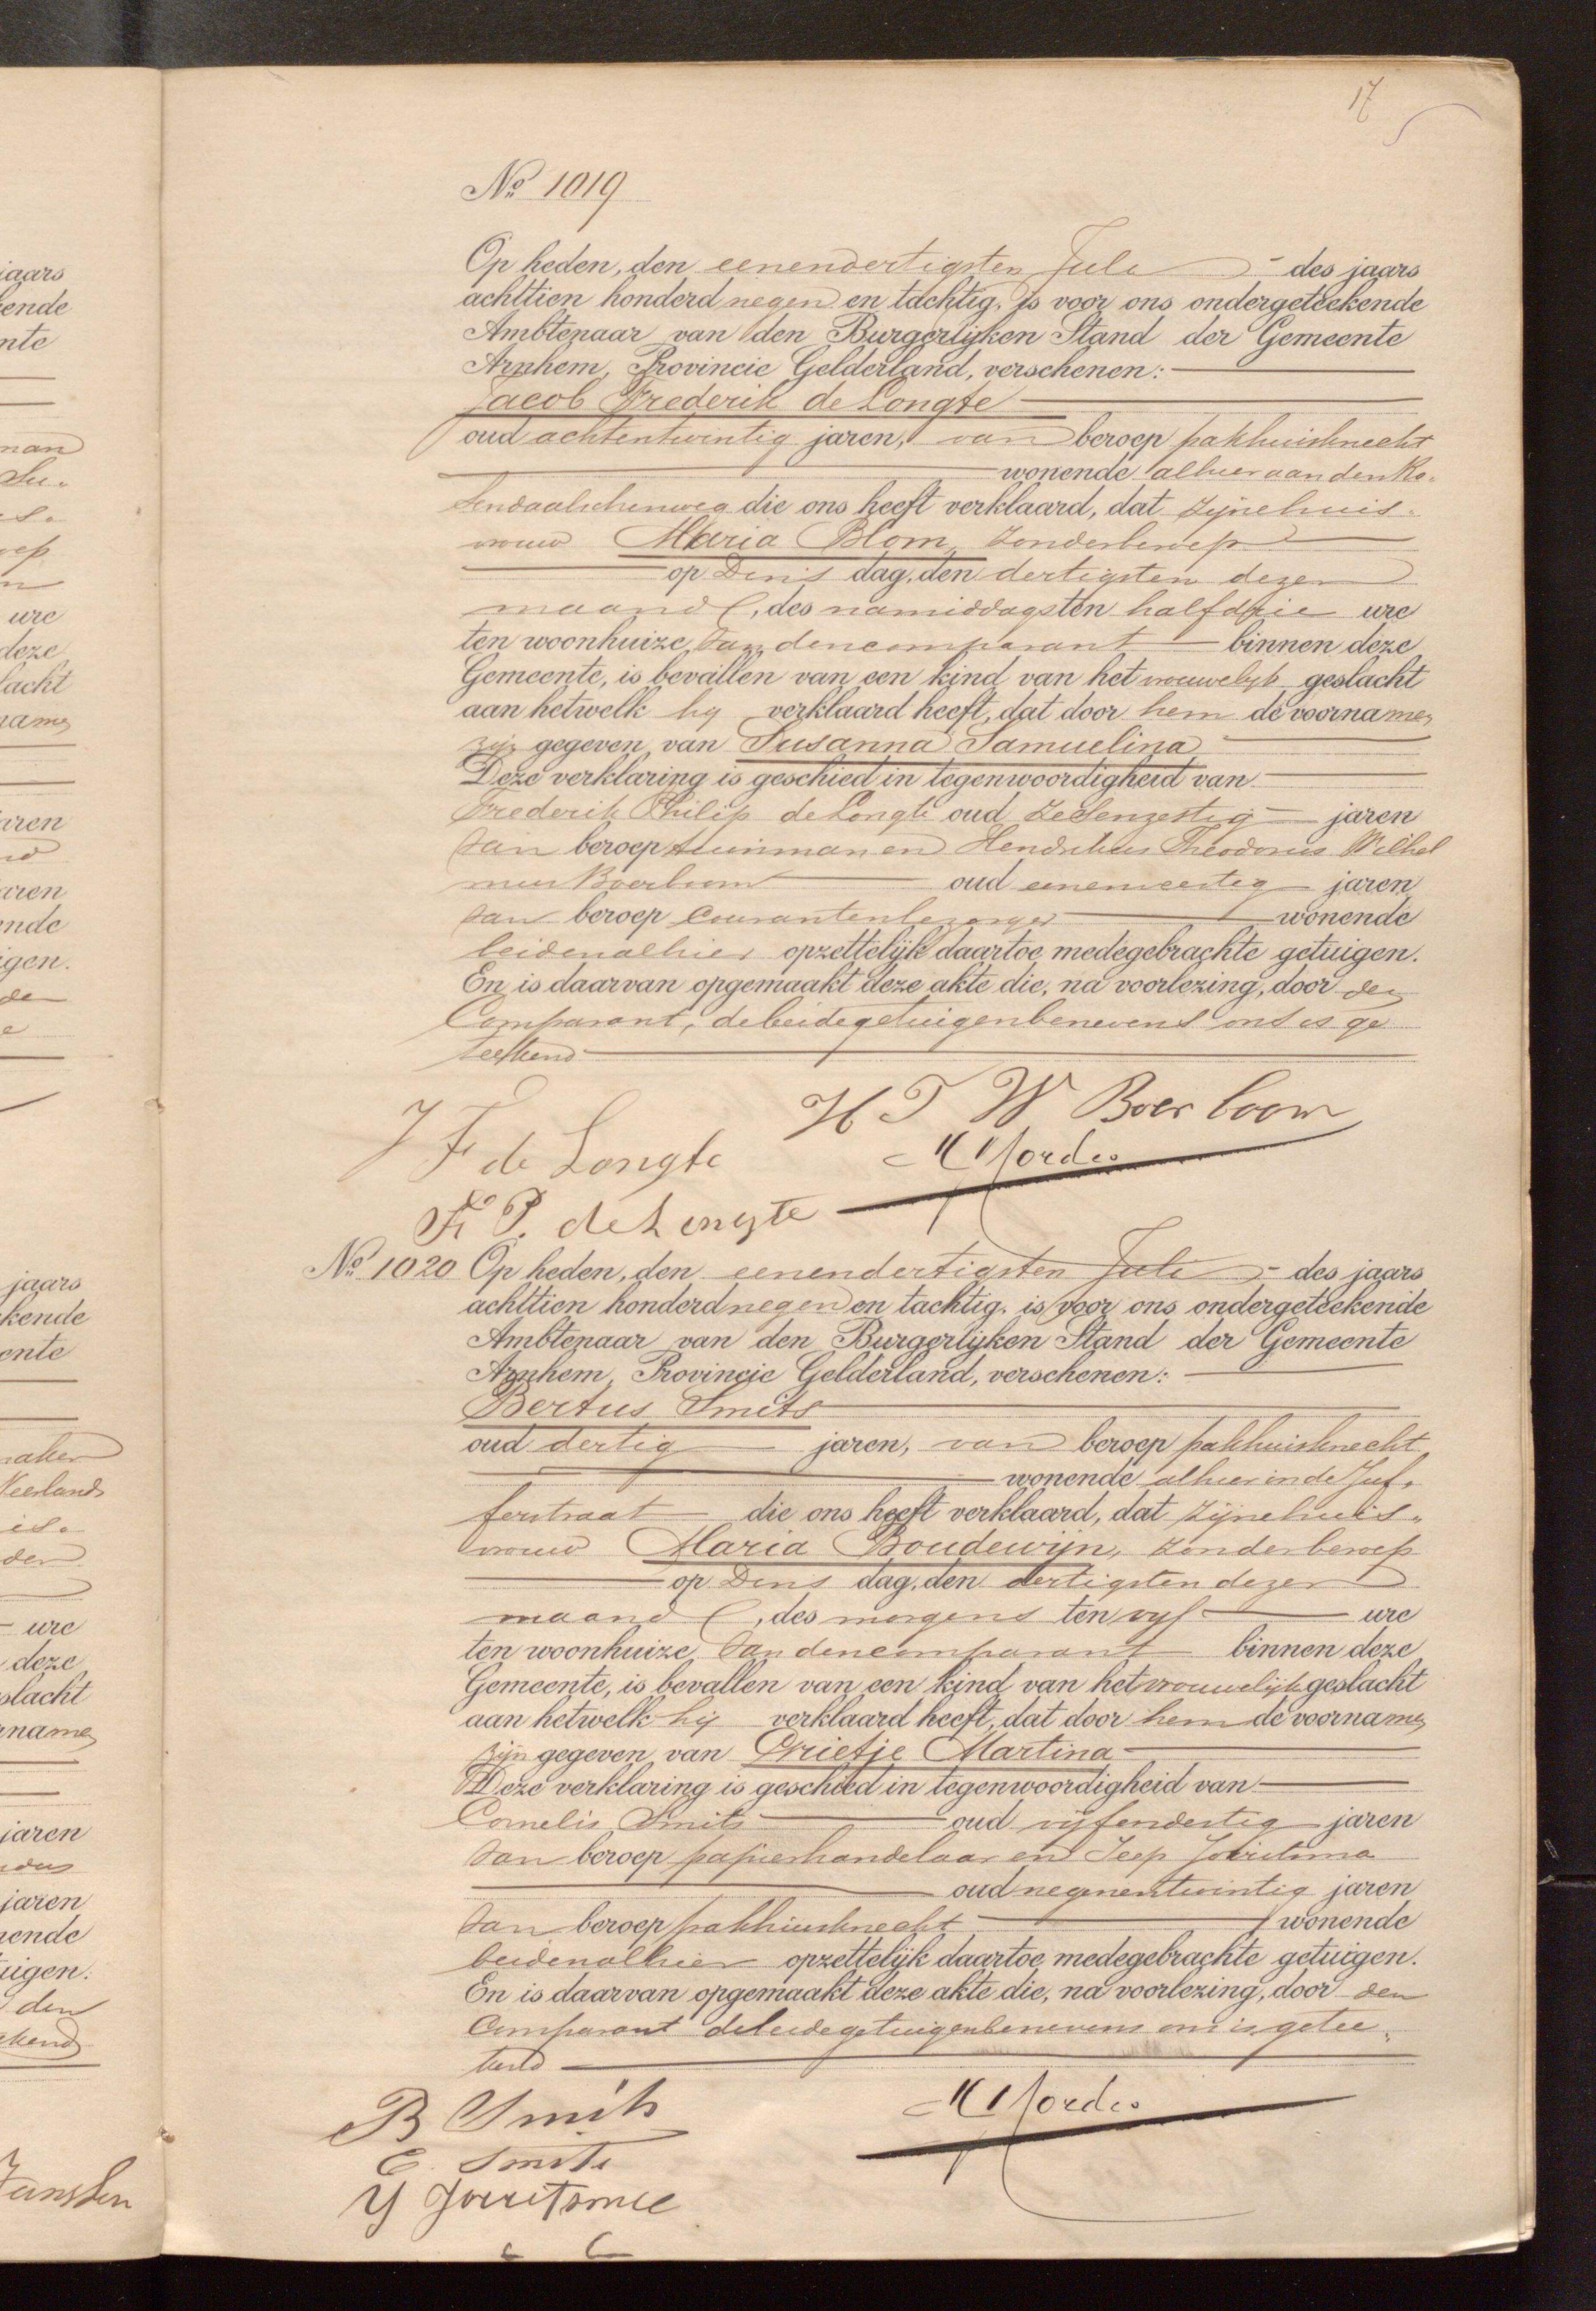 17
No 1019
Op heden, den eenendertigsten Juli des jaars
achttien honderd negen en tachtig, is voor ons ondergeteekende
Ambtenaar van den Burgerlijken Stand der Gemeente
Arnhem, Provincie Gelderland, verschenen:
Jacob Frederik de Longte
oud achtentwintig jaren, van beroep pakhuisknecht
wonende alhier aan den Ro-
sendaalschenweg die ons heeft verklaard, dat zijne huis-
vrouw Maria Blom, zonder beroep
op Dins dag, den dertigsten dezer
maand, des namiddags ten half drie ure
ten woonhuize van den comparant binnen deze
Gemeente, is bevallen van een kind van het vrouwelijk geslacht
aan hetwelk hij verklaard heeft, dat door hem de voornamen
zijn gegeven van Susanna Samuelina
Deze verklaring is geschied in tegenwoordigheid van
Frederik Philip de Longte oud zesenzestig jaren
van beroep tuinman en Hendrikus Theodorus Wilhel
mus Boerboom oud eenenveertig jaren
van beroep courantenbezorger wonende
beiden alhier opzettelijk daartoe medegebrachte getuigen.
En is daarvan opgemaakt deze akte die, na voorlezing, door den
Comparant, de beide getuigen benevens ons is ge
teekend
H T W Boerboom
J F de Longte
F P. de Longte
No 1020 Op heden, den eenendertigsten Juli des jaars
achttien honderd negen en tachtig, is voor ons ondergeteekende
Ambtenaar van den Burgerlijken Stand der Gemeente
Arnhem, Provincie Gelderland, verschenen:
Bertus Smits
oud dertig jaren, van beroep pakhuisknecht
wonende alhier in de Juf-
ferstraat die ons heeft verklaard, dat zijne huis-
vrouw Maria Boudewijn, zonder beroep
op Dins dag, den dertigsten dezer
maand, des morgens ten vijf ure
ten woonhuize van den comparant binnen deze
Gemeente, is bevallen van een kind van het vrouwelijk geslacht
aan hetwelk hij verklaard heeft, dat door hem de voornamen
zijn gegeven van Drietje Martina
Deze verklaring is geschied in tegenwoordigheid van
Cornelis Smits oud vijfendertig jaren
van beroep papierhandelaar en Jeep Jorritsma
oud negenentwintig jaren
van beroep pakhuisknecht wonende
beiden alhier opzettelijk daartoe medegebrachte getuigen.
En is daarvan opgemaakt deze akte die, na voorlezing, door den
Comparant de beide getuigen benevens ons is getee-
kend
B Smits
C. Smits
Y Jorritsma